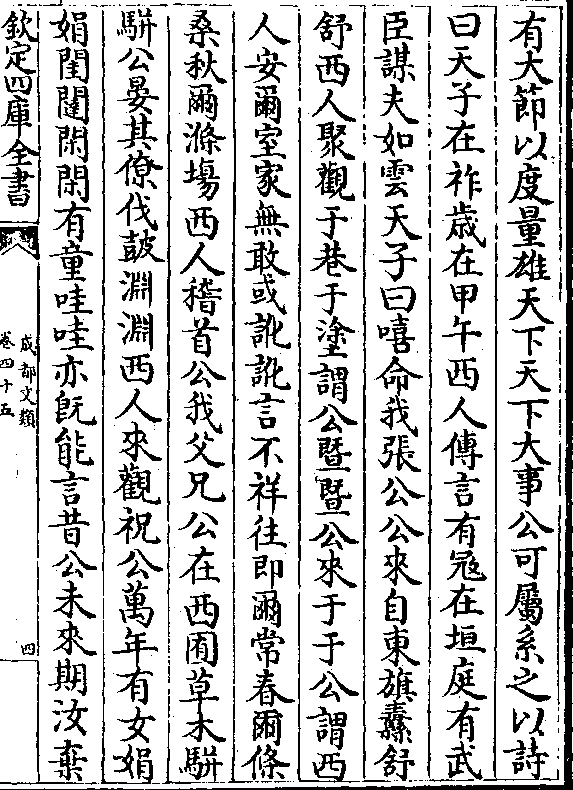 有大節以度量雄天下天下大事公可屬系之以詩
曰天子在祚歳在甲午西人傳言有冦在垣庭有武
臣謀夫如雲天子曰嘻命我張公公來自東旗纛舒
舒西人聚觀于巷于塗謂公暨暨公來于于公謂西
人安爾室家無敢或訛訛言不祥往即爾常春爾條
桑秋爾滌場西人稽首公我父兄公在西囿草木駢
駢公晏其僚伐鼓淵淵西人來觀祝公萬年有女娟
娟閨闥閑閑有童哇哇亦旣能言昔公未來期汝棄
欽定四庫全書
成都文類
卷四十五
四